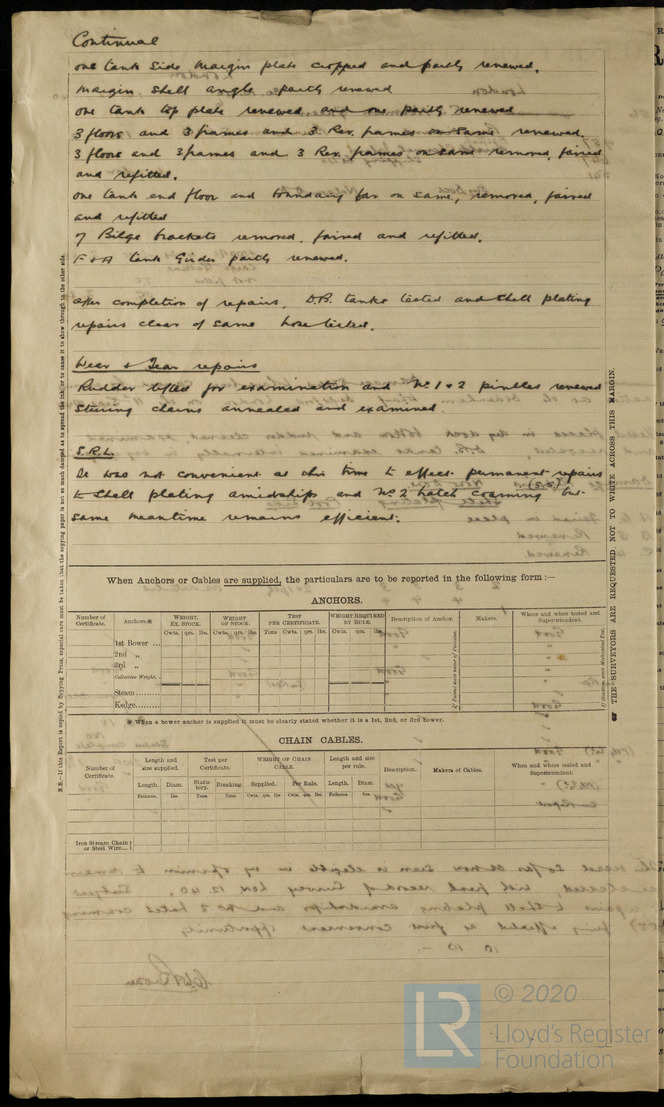 Continued
one tank side margin plate cropped and partly renewed.
Margin shell angle partly renewed
one tank top plate renewed and one partly renewed
3 floors and 3 frames and 3 Rev. frames on same renewed.
3 floors and 3 frames and 3 Rev. frames on same removed, faired
and refitted.
one tank end floor and boundary bar on same, removed, faired
and refitted
7 Bilge brackets removed, faired and refitted.
F & A tank Girder partly renewed.
after completion of repairs. D.B. tanks tested and shell plating
repairs clear of same hose tested.
Wear & Tear repairs
Rudder lifted for examination and No. 1 & 2 pintles renewed
Steering chains annealed and examined.
S.R.L.
It was not convenient at this time to effect permanent repairs
to shell plating amidships and No 2 hatch coaming but
same meantime remains efficient.
N.B.—If this Report is copied by Copying Press, especial care must be taken that the copying paper is not so much damped as to spread the ink, or to cause it to show through to the other side.
THE SURVEYORS ARE REQUESTED NOT TO WRITE ACROSS THIS MARGIN.
When Anchors or Cables are supplied, the particulars are to be reported in the following form :—
ANCHORS.
Number of Certificate. Anchors.* WEIGHT, EX. STOCK. WEIGHT OF STOCK. TEST PER CERTIFICATE. WEIGHT REQUIRED BY RULE. Description of Anchor. Makers. Where and when tested and Superintendent.
Cwts. qrs. lbs. Cwts. qrs. lbs. Tons Cwts. qrs. lbs. Cwts. qrs. lbs.
1st Bower ...
2nd „
3rd „
Collective Weight.
Stream.........
Kedge.........
* When a bower anchor is supplied it must be clearly stated whether it is a 1st, 2nd, or 3rd bower.
CHAIN CABLES.
Number of Certificate. Length and size supplied. Test per Certificate. WEIGHT OF CHAIN CABLE. Length and size per rule. Description. Makers of Cables. When and where tested and Superintendent.
Length. Diam. Statutory. Breaking. Supplied. Per Rule. Length. Diam.
Fathoms. Ins. Tons. Tons. Cwts. qrs. lbs Cwts. qrs. lbs Fathoms. Ins.
Iron Stream Chain or Steel Wire...
© 2020
LR
Lloyd's Register
Foundation